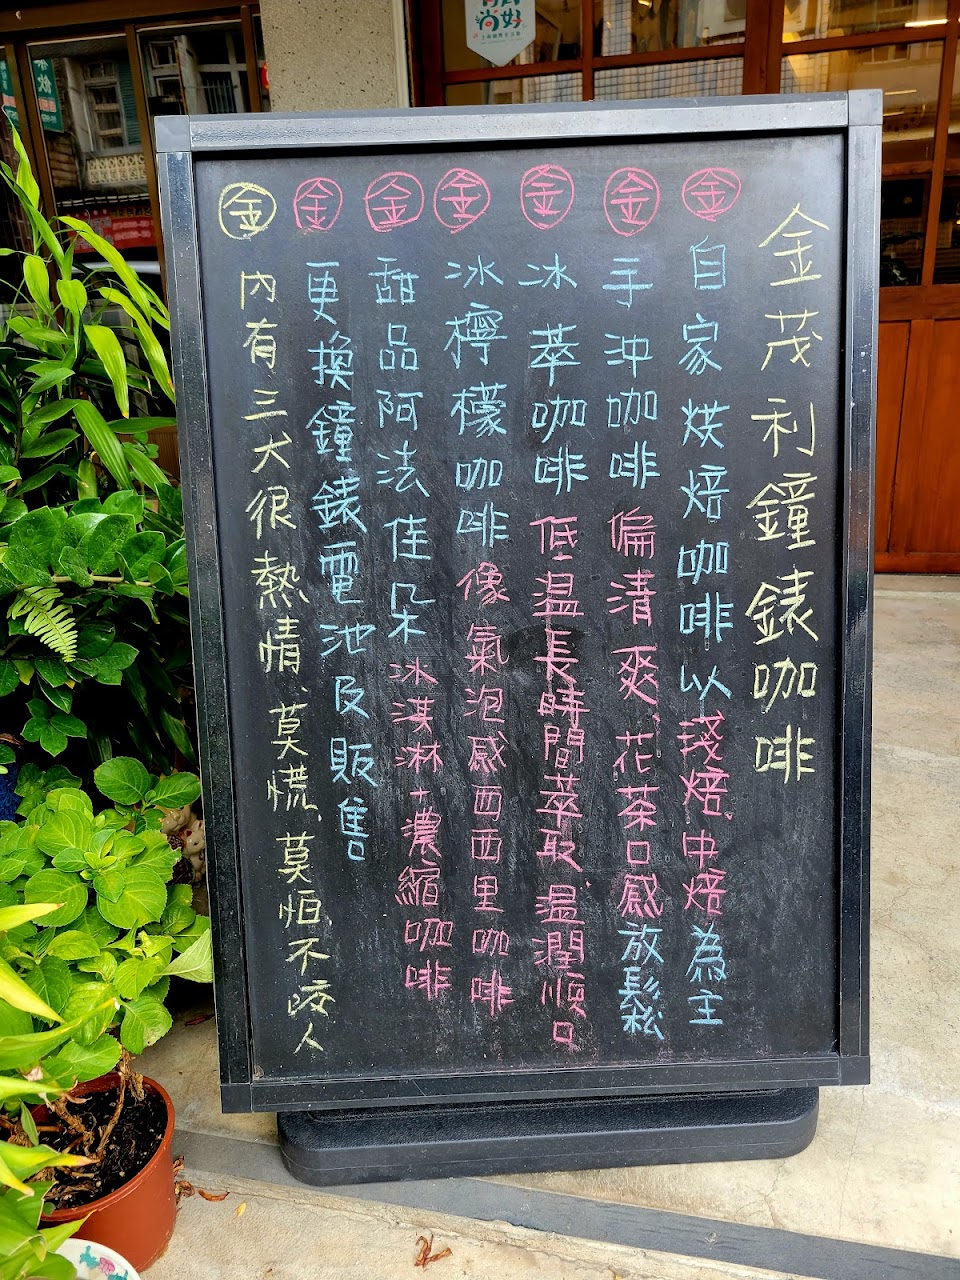 金茂利鐘錶咖啡
金 自家烘焙咖啡以淺焙、中焙為主
金 手沖咖啡偏清爽、花茶口感放鬆
金 冰萃咖啡低溫長時間萃取溫潤順口
金 冰檸檬咖啡像氣泡感西西里咖啡
金 甜品阿法佳朵冰淇淋+濃縮咖啡
金 更換鐘錶電池及販售
金 內有三犬很熱情、莫慌、莫怕、不咬人
尚好